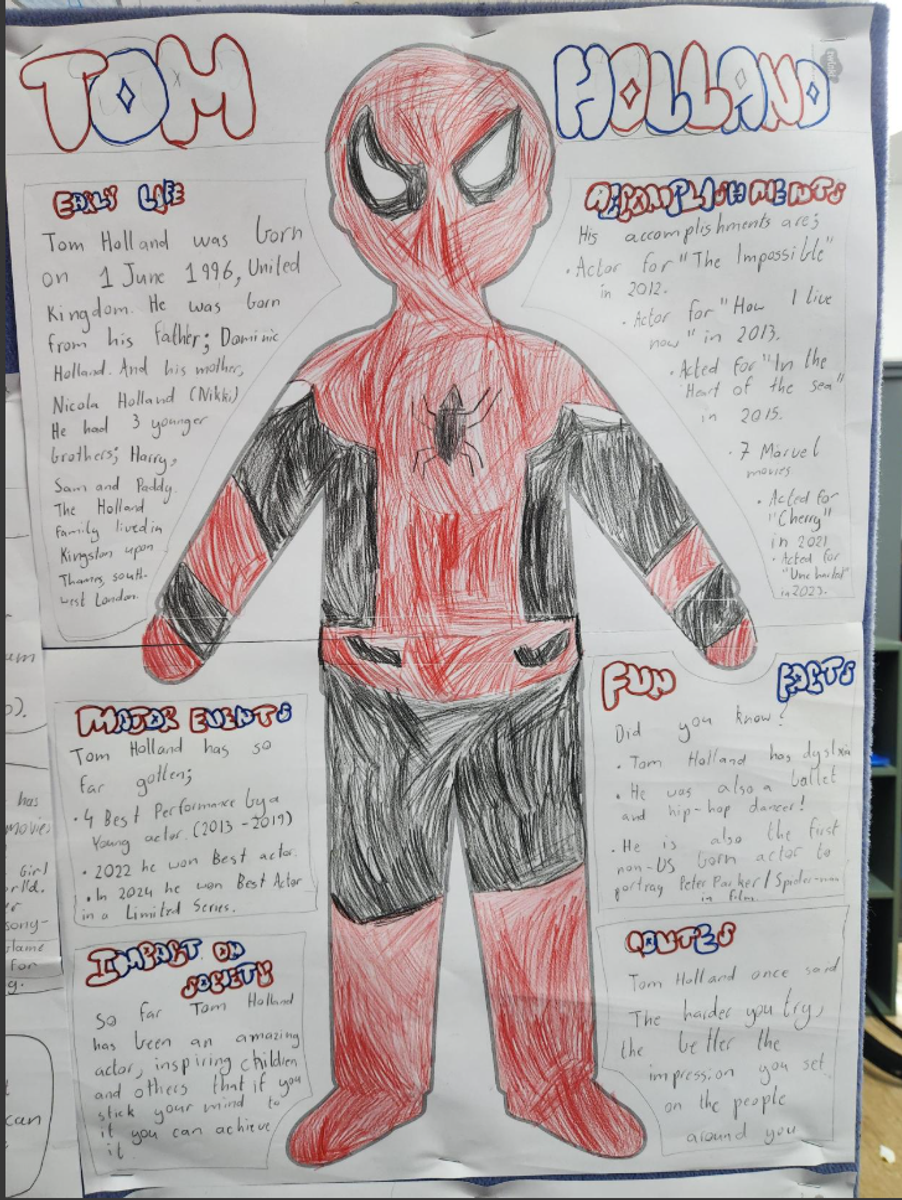 TOM
HOLLAND
EARLY LIFE
Tom Holland was born
on 1 June 1996, United
Kingdom. He was born
from his father; Dominic
Holland. And his mother,
Nicola Holland (Nikki)
He had 3 younger
brothers; Harry,
Sam and Paddy.
The Holland
Family lived in
Kingston upon
Thames, south-
west London.
ACCOMPLISHMENTS
His accomplishments are;
• Actor for "The Impossible"
in 2012.
• Actor for "How I live
now" in 2013.
• Acted for "In the
Heart of the sea"
in 2015.
• 7 Marvel
movies.
• Acted for
"Cherry"
in 2021
• Acted for
"Uncharted"
in 2023.
MAJOR EVENTS
Tom Holland has so
far gotten;
• 4 Best Performance by a
Young actor. (2013-2019)
• 2022 he won Best actor.
• In 2024 he won Best Actor
in a Limited Series.
FUN FACTS
Did you know?
• Tom Holland has dyslxia
• He was also a ballet
and hip-hop dancer!
• He is also the first
non-US born actor to
portray Peter Parker/Spider-man
in film.
IMPACT ON
SOCIETY
So far Tom Holland
has been an amazing
actor, inspiring children
and others that if you
stick your mind to
it you can achieve
it.
QOUTES
Tom Holland once said
The harder you try,
the better the
impression you set
on the people
around you
um
).
has
movie
Girl
sony-
for
g.
can